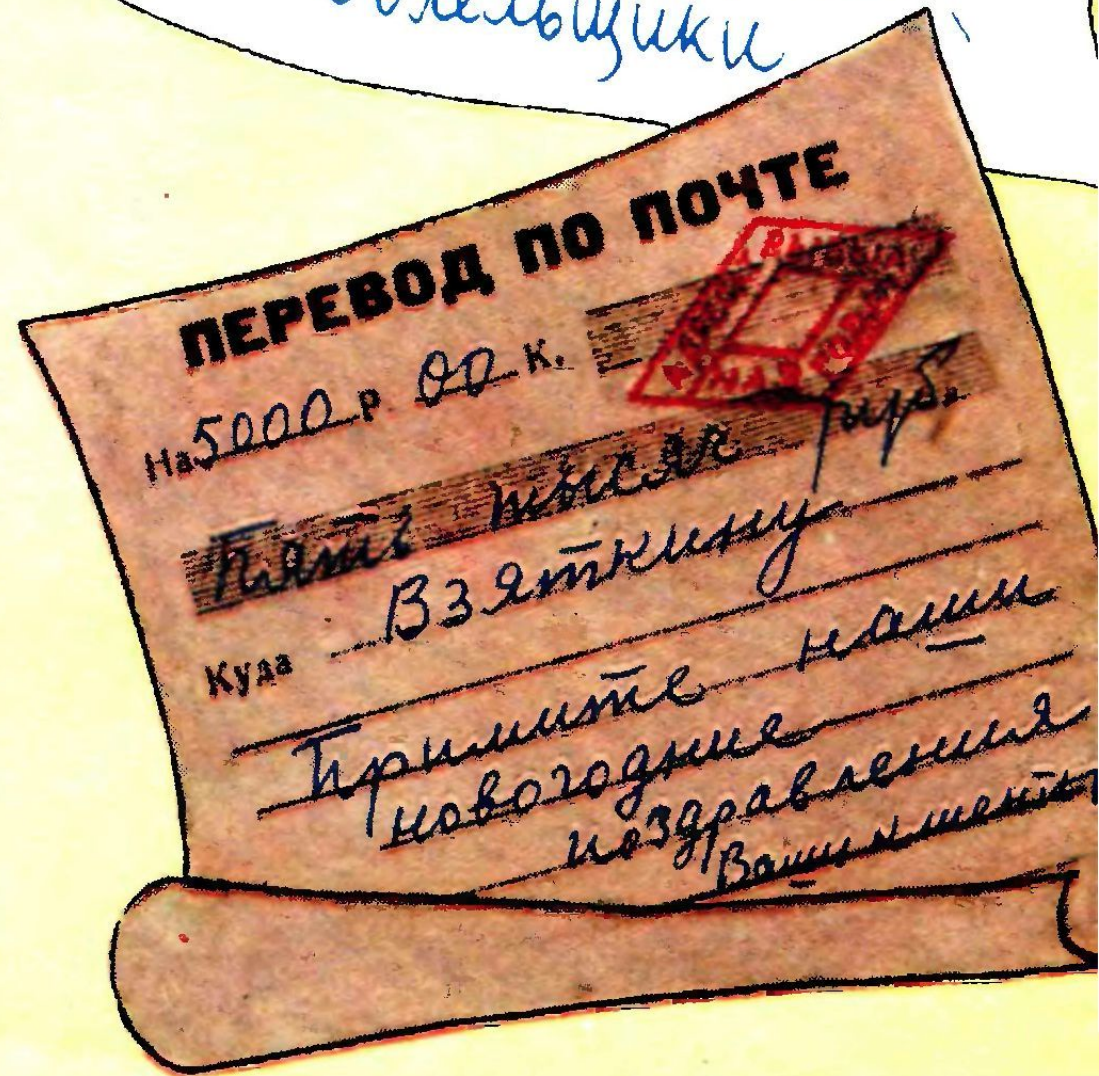 ПЕРЕВОД ПО ПОЧТЕ
На 5000 р. 00 к.
Пять тысяч руб.
Взяткину
Куда
Примите наши
новогодние
поздравления
Ваши клиенты